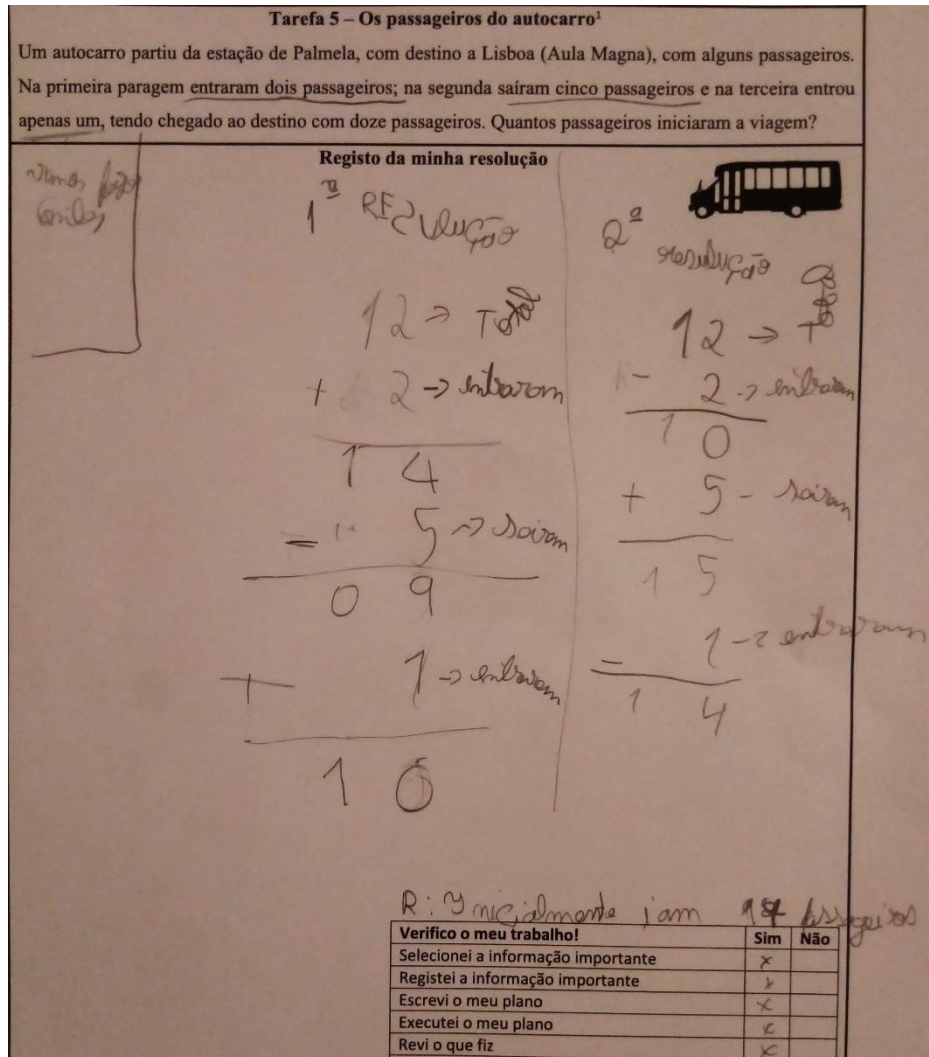 Tarefa 5 – Os passageiros do autocarro¹
Um autocarro partiu da estação de Palmela, com destino a Lisboa (Aula Magna), com alguns passageiros.
Na primeira paragem entraram dois passageiros; na segunda saíram cinco passageiros e na terceira entrou
apenas um, tendo chegado ao destino com doze passageiros. Quantos passageiros iniciaram a viagem?
Registo da minha resolução
Vamos fazer
1ª
12 → Total
+ 2 → entraram
14
- 5 → sairam
09
+ 1 → entraram
10
2ª resulução
12 →
- 2 → entraram
10
+ 5 - sairam
15
- 1 → entraram
14
R: Inicialmente iam 14
Verifico o meu trabalho! Sim Não
Selecionei a informação importante x
Registei a informação importante x
Escrevi o meu plano x
Executei o meu plano x
Revi o que fiz x